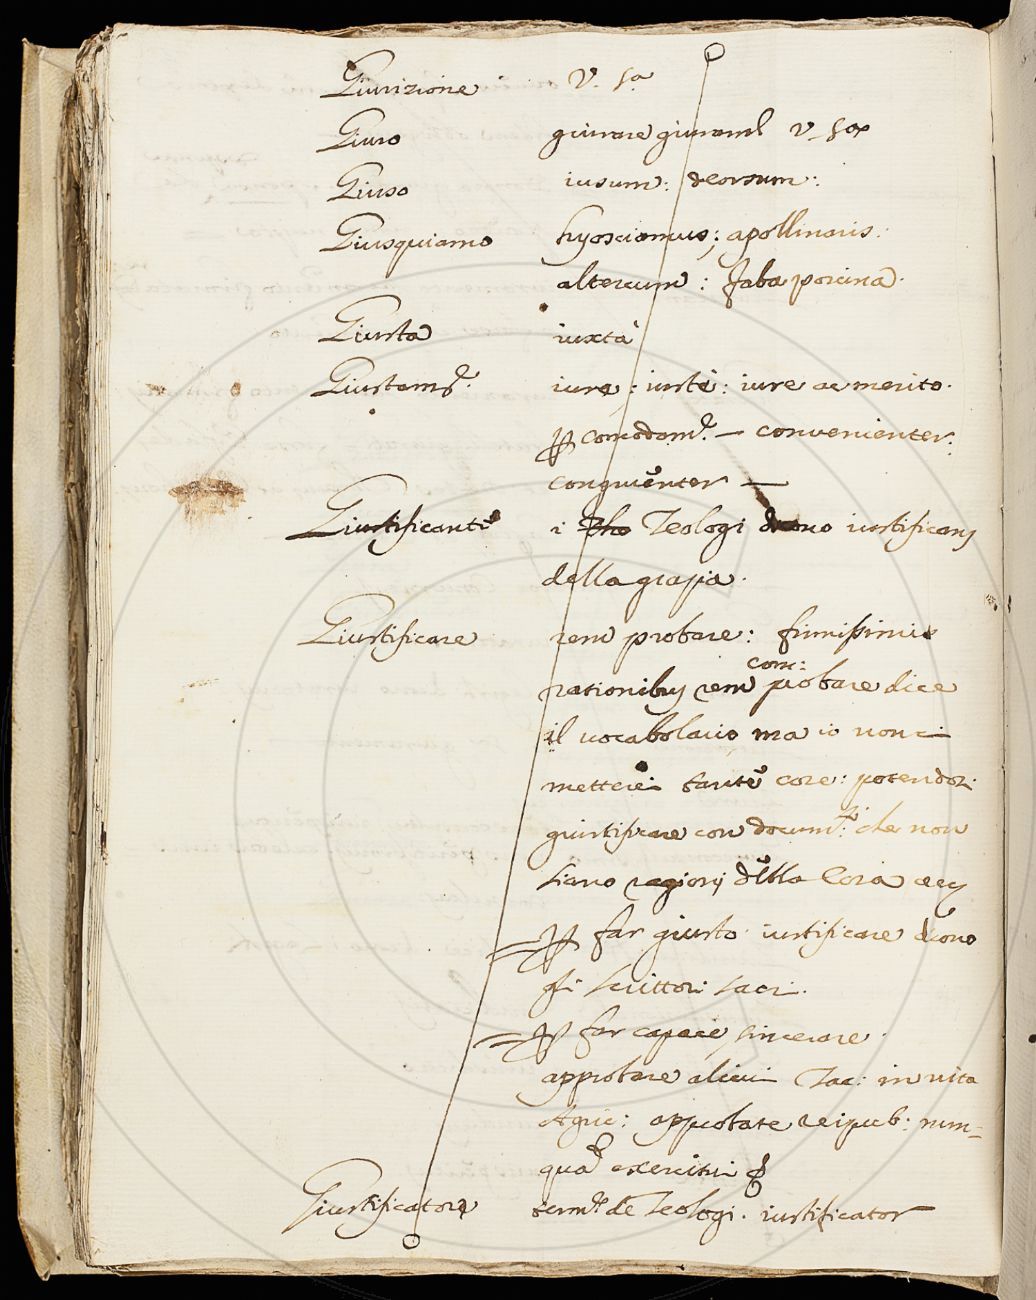 Giurizione V. sᵃ
Giuro giurare giuramᵗ v. sᵃ
Giuso iusum: deorsum:
Giusquiamo hyosciamus; apollinaris:
altercum: faba porcina.
Giusta iuxta
Giustamᵗᵉ. iure: iustè: iure ac merito.
comodamᵗᵉ. — convenienter:
congruēnter —
Giustificantē i Teologi dicono iustificans
della grazia.
Giustificare rem probare: firmissimis
com:
rationibus rem probare dice
il vocabolario ma io non ci
metterei tante cose: potendosi
giustificare con documᵗⁱ. che non
siano ragioni della Cosa
far giusto iustificare dicono
gli scrittori sacri.
far capace sincerare.
approbare alicui Tac: in vita
Agric: approbate reipub: num=
quā exercitui
Giustificatore termᵉ. de Teologi. iustificator